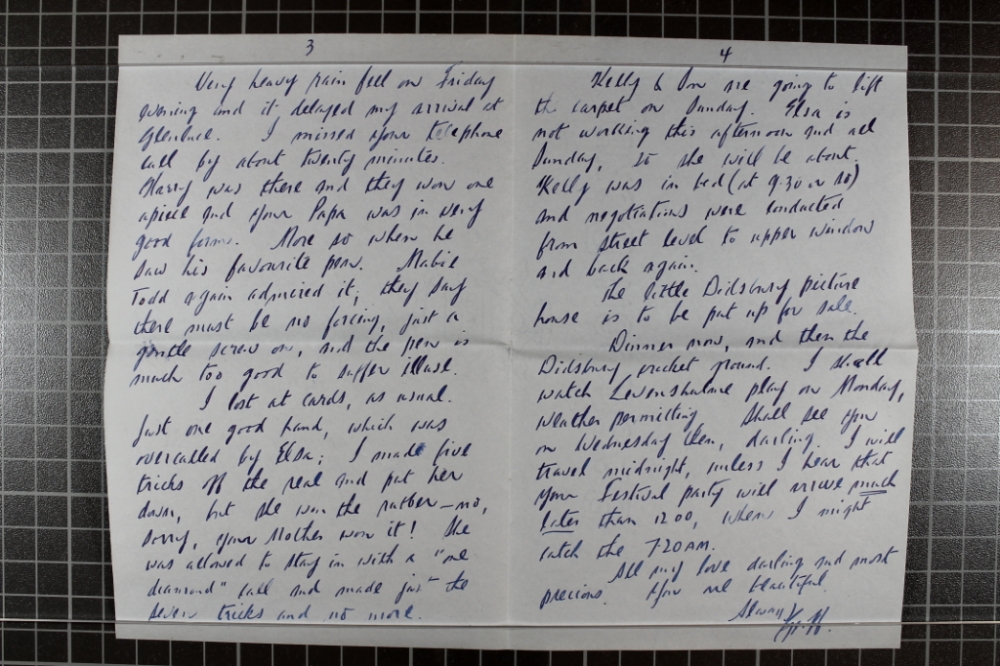 3
Very heavy rain fell on Friday
evening and it delayed my arrival at
I missed your telephone
call by about twenty minutes.
Harry was there and they won one
apiece and your Papa was in very
good form. More so when he
saw his favourite pen. Mabie
Todd again admired it; they say
there must be no forcing, just a
gentle screw on, and the pen is
much too good to suffer illuse.
I lost at cards, as usual.
Just one good hand, which was
overcalled by Elsa; I made five
tricks off the real and put her
down, but she won the rubber - no,
sorry, your Mother won it! She
was allowed to stay in with a "one
diamond" call and made just the
seven tricks and no more.
4
Kelly & Don are going to lift
the carpet on Sunday. Elsa is
not working this afternoon and all
Sunday, so she will be about.
Kelly was in bed (at 9.30 or so)
and negotiations were conducted
from street level to upper window
and back again.
The little Didsbury picture
house is to be put up for sale.
Dinner now, and then the
Didsbury cricket ground. I shall
watch Levenshulme play on Monday,
weather permitting. Shall see you
on Wednesday then, darling. I will
travel midnight, unless I hear that
your Festival party will arrive much
later than 12.00, when I might
catch the 7.20 AM.
All my love darling and most
precious. You are beautiful.
Always